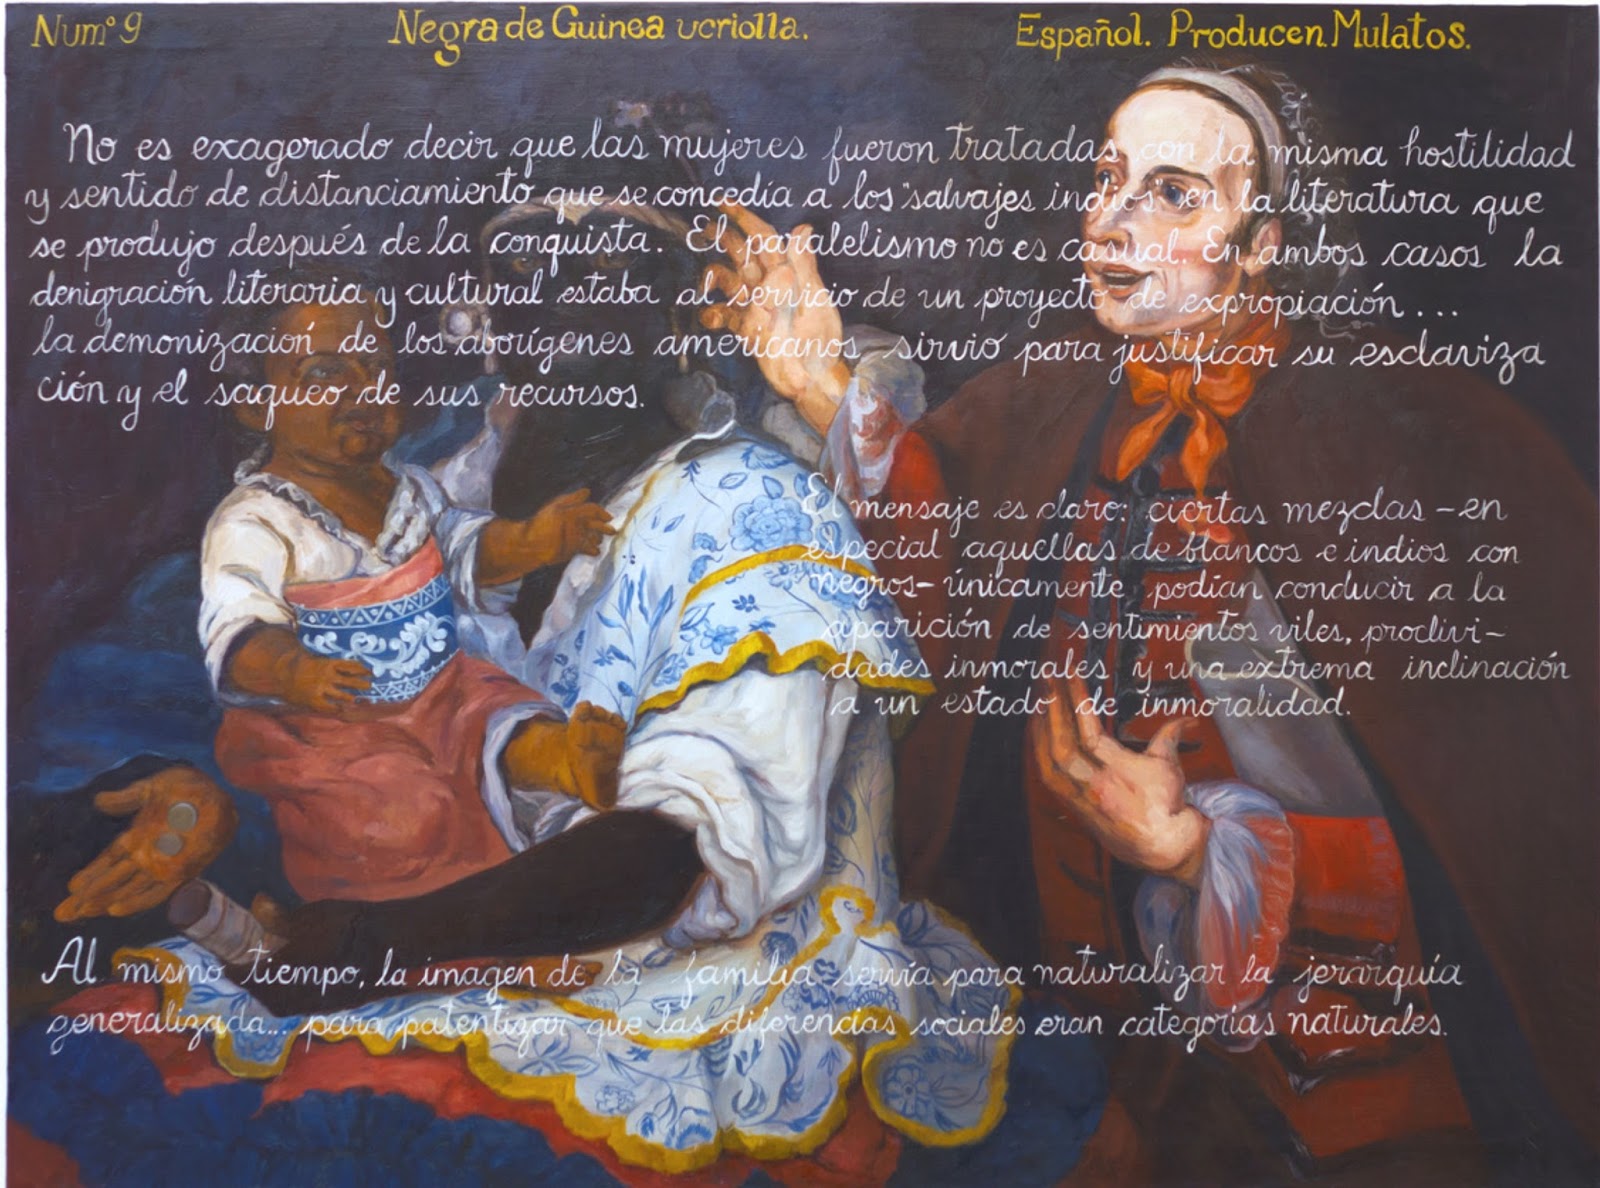 Num° 9
Negra de Guinea ucriolla.
Español. Producen Mulatos.
No es exagerado decir que las mujeres fueron tratadas con la misma hostilidad
y sentido de distanciamiento que se concedía a los "salvajes indios" en la literatura que
se produjo después de la conquista. El paralelismo no es casual. En ambos casos la
denigración literaria y cultural estaba al servicio de un proyecto de expropiación...
la demonización de los aborígenes americanos sirvio para justificar su esclaviza
ción y el saqueo de sus recursos.
El mensaje es claro: ciertas mezclas - en
especial aquellas de blancos e indios con
negros - únicamente podían conducir a la
aparición de sentimientos viles, proclivi-
dades inmorales y una extrema inclinación
a un estado de inmoralidad.
Al mismo tiempo, la imagen de la familia servía para naturalizar la jerarquía
generalizada... para patentizar que las diferencias sociales eran categorías naturales.